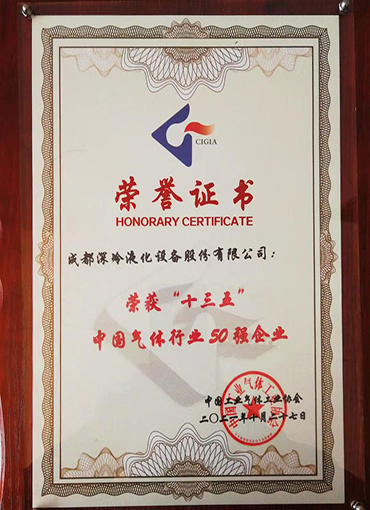 CIGIA
荣誉证书
HONORARY CERTIFICATE
成都深冷液化设备股份有限公司：
荣获“十三五”
中国气体行业50强企业
中国工业气体工业协会
二〇二一年十月二十七日